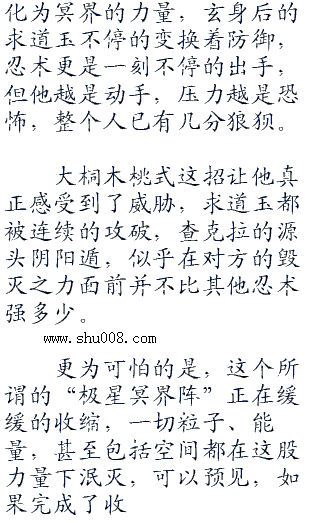 化为冥界的力量，玄身后的
求道玉不停的变换着防御，
忍术更是一刻不停的出手，
但他越是动手，压力越是恐
怖，整个人已有几分狼狈。
大桐木桃式这招让他真
正感受到了威胁，求道玉都
被连续的攻破，查克拉的源
头阴阳遁，似乎在对方的毁
灭之力面前并不比其他忍术
强多少。
www.shu008.com
更为可怕的是，这个所
谓的“极星冥界阵”正在缓
缓的收缩，一切粒子、能
量，甚至包括空间都在这股
力量下泯灭，可以预见，如
果完成了收